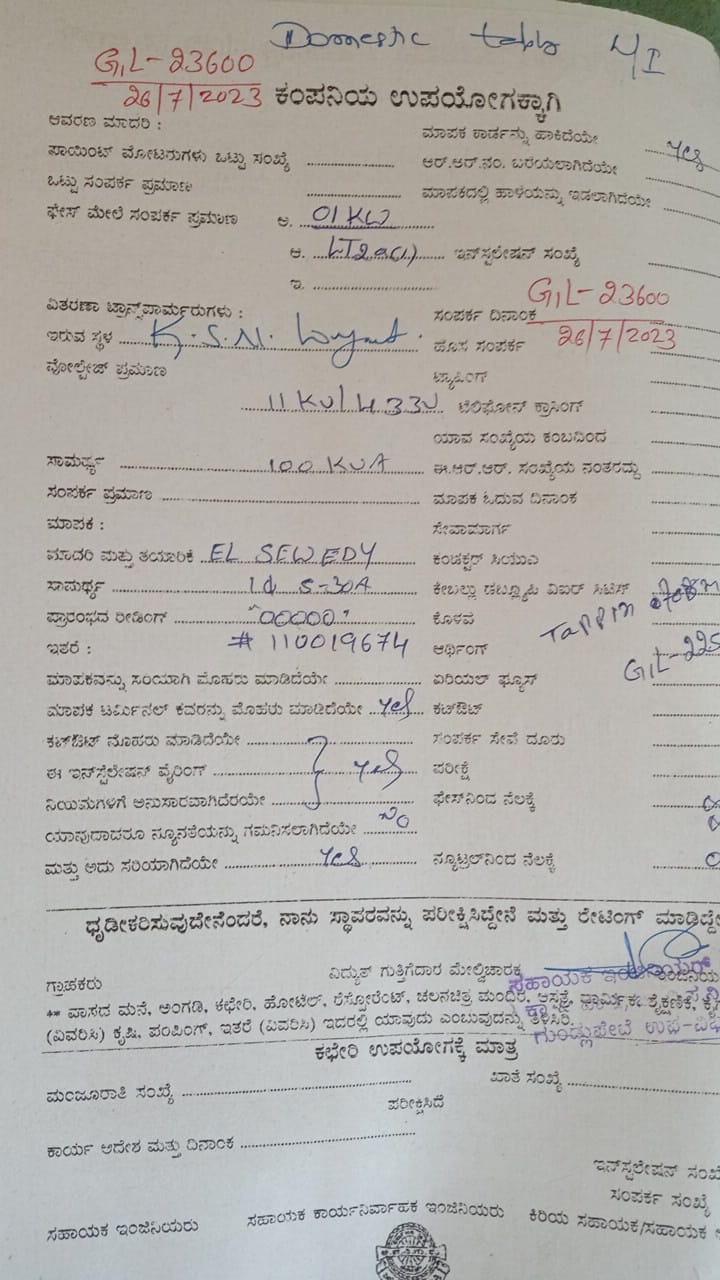 Domestic table 4/I
G,L-23600
26/7/2023 ಕಂಪನಿಯ ಉಪಯೋಗಕ್ಕಾಗಿ
ಆವರಣ ಮಾದರಿ : ಮಾಪಕ ಕಾರ್ಡನ್ನು ಹಾಕಿದೆಯೇ yes
ಪಾಯಿಂಟ್ ಮೋಟರುಗಳು ಒಟ್ಟು ಸಂಖ್ಯೆ ಆರ್.ಆರ್.ನಂ. ಬರೆಯಲಾಗಿದೆಯೇ
ಒಟ್ಟು ಸಂಪರ್ಕ ಪ್ರಮಾಣ ಮಾಪಕದಲ್ಲಿ ಹಾಳೆಯನ್ನು ಇಡಲಾಗಿದೆಯೇ
ಫೇಸ್ ಮೇಲೆ ಸಂಪರ್ಕ ಪ್ರಮಾಣ ಅ. 01 KW
ಆ. LT2a(1) ಇನ್‌ಸ್ಟಲೇಷನ್ ಸಂಖ್ಯೆ
ಇ.
ವಿತರಣಾ ಟ್ರಾನ್ಸ್‌ಫಾರ್ಮರುಗಳು : ಸಂಪರ್ಕ ದಿನಾಂಕ G,L-23600
26/7/2023
ಇರುವ ಸ್ಥಳ K.S.N. Layout. ಹೊಸ ಸಂಪರ್ಕ
ವೋಲ್ಟೇಜ್ ಪ್ರಮಾಣ ಟ್ಯಾಪಿಂಗ್
11 KV/433V ಟೆಲಿಫೋನ್ ಕ್ರಾಸಿಂಗ್
ಯಾವ ಸಂಖ್ಯೆಯ ಕಂಬದಿಂದ
ಸಾಮರ್ಥ್ಯ 100 KVA ಈ.ಆರ್.ಆರ್. ಸಂಖ್ಯೆಯ ನಂತರದ್ದು
ಸಂಪರ್ಕ ಪ್ರಮಾಣ ಮಾಪಕ ಓದುವ ದಿನಾಂಕ
ಮಾಪಕ : ಸೇವಾಮಾರ್ಗ
ಮಾದರಿ ಮತ್ತು ತಯಾರಿಕೆ EL SEWEDY ಕಂಡಕ್ಟರ್ ಸಿಯುಎ
ಸಾಮರ್ಥ್ಯ 1ф 5-30A ಕೇಬಲ್ಲು ಡಬ್ಲ್ಯೂಪಿ ವಿಐರ್ ಸಿಟಿಸ್
ಪ್ರಾರಂಭದ ರೀಡಿಂಗ್ "00000" ಕೊಳವೆ
ಇತರೆ : # 110019674 ಆರ್ಥಿಂಗ್
G,L-225
ಮಾಪಕವನ್ನು ಸರಿಯಾಗಿ ಮೊಹರು ಮಾಡಿದೆಯೇ ಏರಿಯಲ್ ಫ್ಯೂಸ್
ಮಾಪಕ ಟರ್ಮಿನಲ್ ಕವರನ್ನು ಮೊಹರು ಮಾಡಿದೆಯೇ yes ಕಟ್‌ಔಟ್
ಕಟ್‌ಔಟ್ ಮೊಹರು ಮಾಡಿದೆಯೇ ಸಂಪರ್ಕ ಸೇವೆ ದೂರು
ಈ ಇನ್‌ಸ್ಟಲೇಷನ್ ವೈರಿಂಗ್ yes ಪರೀಕ್ಷೆ
ನಿಯಮಗಳಿಗೆ ಅನುಸಾರವಾಗಿದೆರಯೇ ಫೇಸ್‌ನಿಂದ ನೆಲಕ್ಕೆ
ಯಾವುದಾದರೂ ನ್ಯೂನತೆಯನ್ನು ಗಮನಿಸಲಾಗಿದೆಯೇ no
ಮತ್ತು ಅದು ಸರಿಯಾಗಿದೆಯೇ Yes ನ್ಯೂಟ್ರಲ್‌ನಿಂದ ನೆಲಕ್ಕೆ
ಧೃಡೀಕರಿಸುವುದೇನೆಂದರೆ, ನಾನು ಸ್ಥಾವರವನ್ನು ಪರೀಕ್ಷಿಸಿದ್ದೇನೆ ಮತ್ತು ರೇಟಿಂಗ್ ಮಾಡಿದ್ದೇ
ಗ್ರಾಹಕರು ವಿದ್ಯುತ್ ಗುತ್ತಿಗೆದಾರ ಮೇಲ್ವಿಚಾರಕ
ಸಹಾಯಕ ಇಂಜಿನಿಯರ್
** ವಾಸದ ಮನೆ, ಅಂಗಡಿ, ಕಛೇರಿ, ಹೋಟೆಲ್, ರೆಸ್ಟೋರೆಂಟ್, ಚಲನಚಿತ್ರ ಮಂದಿರ, ಆಸ್ಪತ್ರೆ, ಧಾರ್ಮಿಕ, ಶೈಕ್ಷಣಿಕ,
(ವಿವರಿಸಿ) ಕೃಷಿ, ಪಂಪಿಂಗ್, ಇತರೆ (ವಿವರಿಸಿ) ಇದರಲ್ಲಿ ಯಾವುದು ಎಂಬುವುದನ್ನು ತಿಳಿಸಿರಿ.
ಗುಂಡ್ಲುಪೇಟೆ ಉಪ-ವಿಭ
ಕಛೇರಿ ಉಪಯೋಗಕ್ಕೆ ಮಾತ್ರ
ಮಂಜೂರಾತಿ ಸಂಖ್ಯೆ ಖಾತೆ ಸಂಖ್ಯೆ
ಪರೀಕ್ಷಿಸಿದೆ
ಕಾರ್ಯ ಆದೇಶ ಮತ್ತು ದಿನಾಂಕ
ಇನ್‌ಸ್ಟಲೇಷನ್ ಸಂಖ್ಯೆ
ಸಂಪರ್ಕ ಸಂಖ್ಯೆ
ಸಹಾಯಕ ಇಂಜಿನಿಯರು ಸಹಾಯಕ ಕಾರ್ಯನಿರ್ವಾಹಕ ಇಂಜಿನಿಯರು ಕಿರಿಯ ಸಹಾಯಕ/ಸಹಾಯಕ